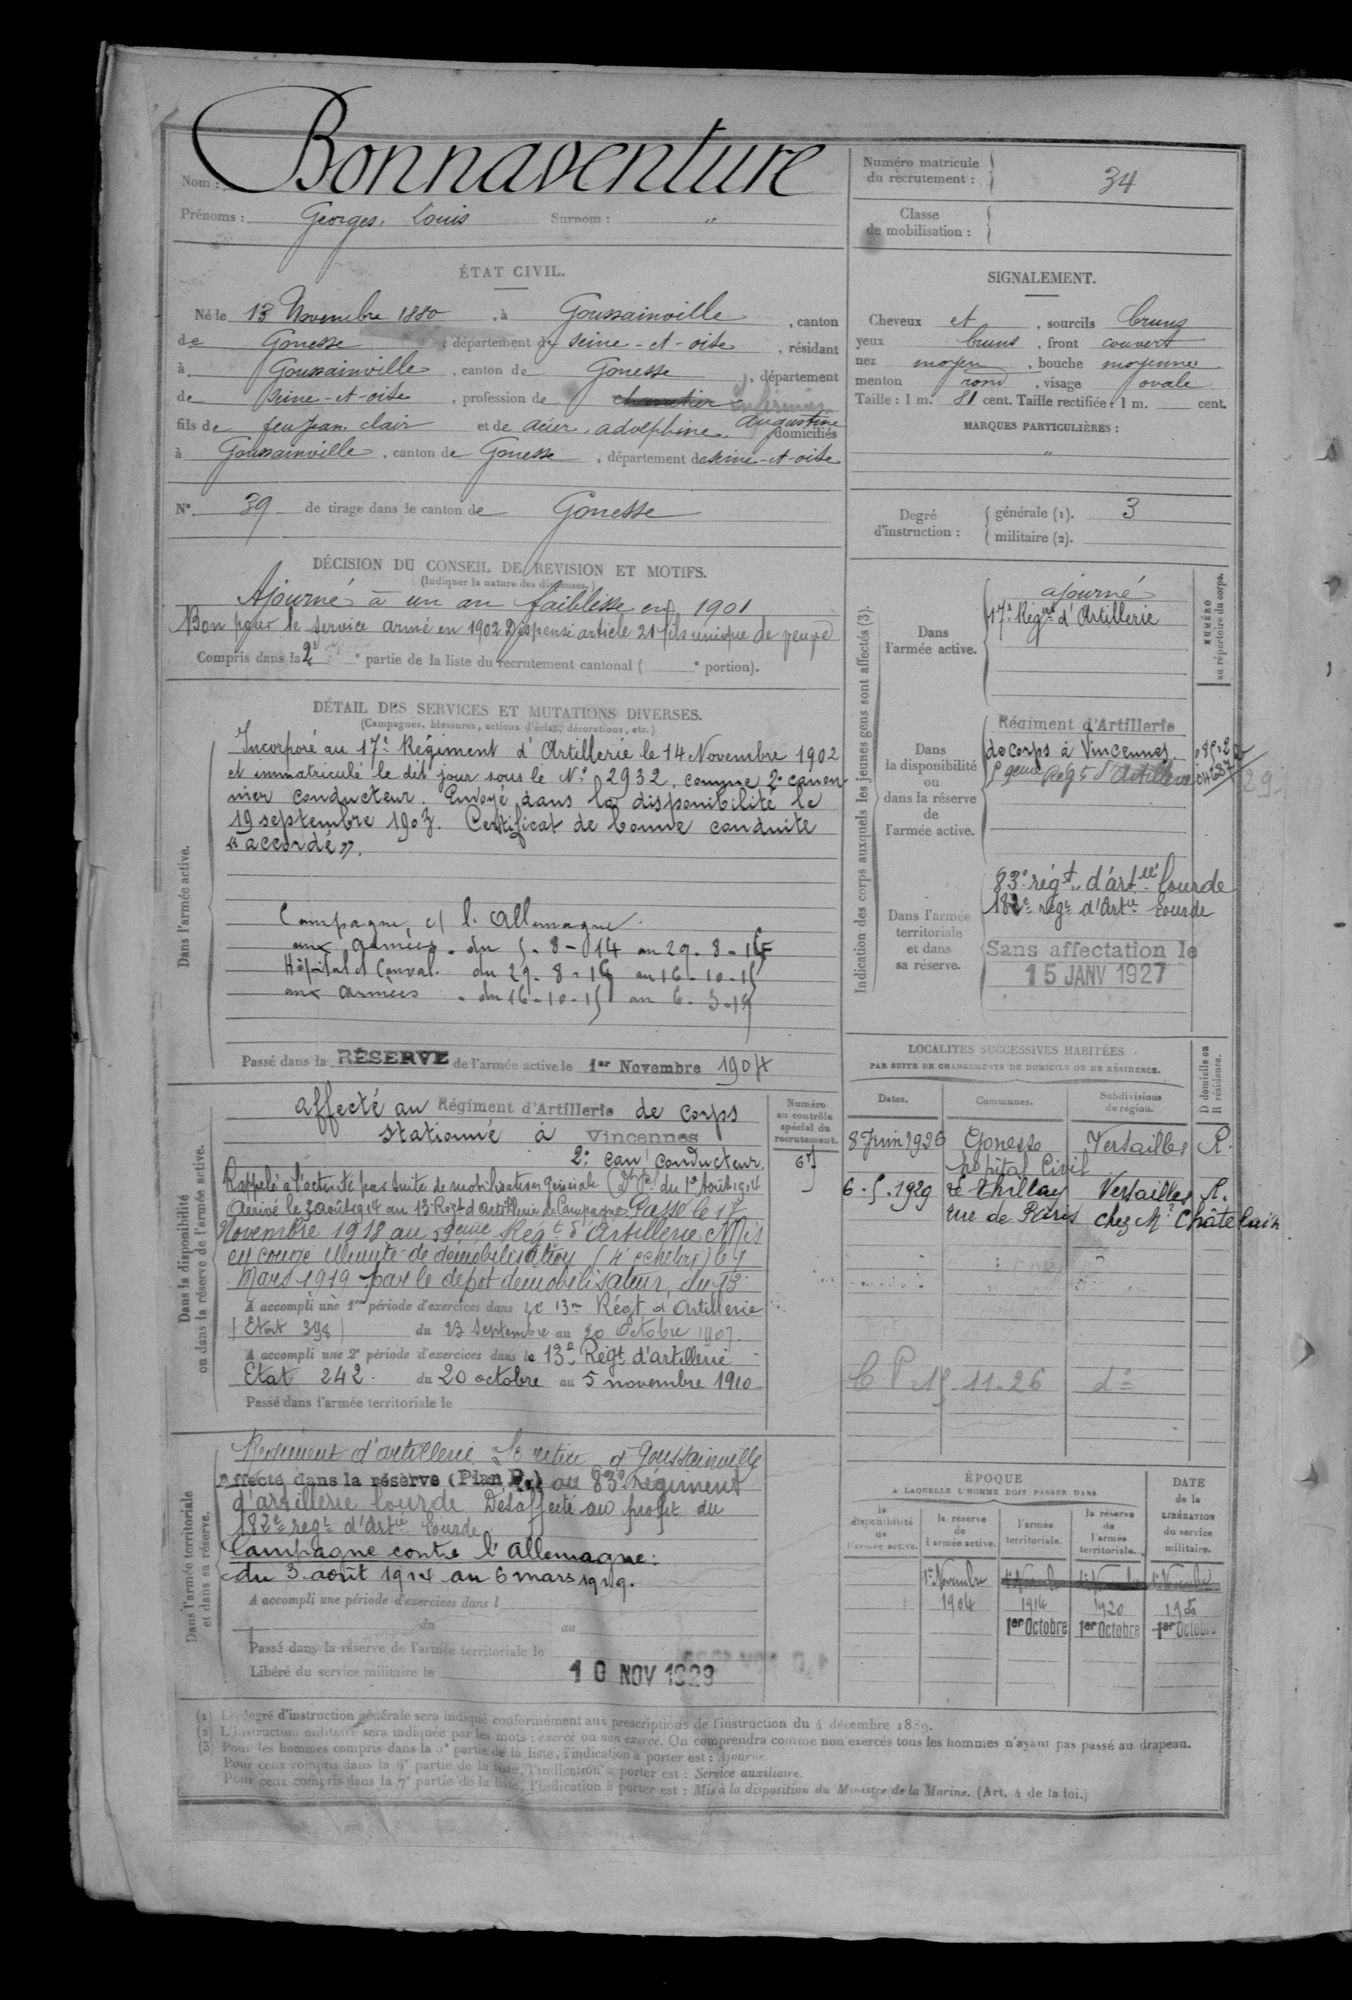 Nom : Bonnaventure
Prénoms : Georges, Louis Surnom : "
Numéro matricule du recrutement : 34
Classe de mobilisation :
ÉTAT CIVIL.
Né le 13 Novembre 1880, à Goussainville, canton
de Gonesse, département de Seine-et-oise, résidant
à Goussainville, canton de Gonesse, département
de Seine-et-oise, profession de charretier infirmier
fils de feu Jean Clair et de acier, adolphine Augustine domiciliés
à Goussainville, canton de Gonesse, département de Seine-et-oise
N° 39 de tirage dans le canton de Gonesse
SIGNALEMENT.
Cheveux et, sourcils bruns
yeux bruns, front couvert
nez moyen, bouche moyenne
menton rond, visage ovale
Taille : 1 m. 81 cent. Taille rectifiée : 1 m. cent.
MARQUES PARTICULIÈRES :
"
Degré d'instruction : générale (1). 3
militaire (2).
DÉCISION DU CONSEIL DE REVISION ET MOTIFS.
(Indiquer la nature des dispenses.)
Ajourné à un an faiblesse en 1901
Bon pour le service armé en 1902 Dispensé article 21 fils unique de veuve
Compris dans la 2e partie de la liste du recrutement cantonal ( e portion).
DÉTAIL DES SERVICES ET MUTATIONS DIVERSES.
(Campagnes, blessures, actions d'éclat, décorations, etc.)
Dans l'armée active.
Incorporé au 17e Régiment d'Artillerie le 14 Novembre 1902
et immatriculé le dit jour sous le N° 2932, comme 2e canon-
nier conducteur. Envoyé dans la disponibilité le
19 septembre 1903. Certificat de bonne conduite
"accordé".
Campagne c/ l'Allemagne
aux armées du 5-8-14 au 29-8-15
Hôpital et Conval. du 29-8-15 au 16-10-15
aux armées du 16-10-15 au 6-3-19
Passé dans la RÉSERVE de l'armée active le 1er Novembre 1904
Indication des corps auxquels les jeunes gens sont affectés (3).
NUMÉRO au répertoire du corps.
Dans l'armée active.
ajourné
17e Régt d'Artillerie
Dans la disponibilité ou dans la réserve de l'armée active.
Régiment d'Artillerie
de corps à Vincennes
Régt d'Artillerie
Dans l'armée territoriale et dans sa réserve.
83e régt d'artie lourde
182e régt d'Artie Lourde
Sans affectation le
15 JANV 1927
LOCALITÉS SUCCESSIVES HABITÉES
PAR SUITE DE CHANGEMENTS DE DOMICILE OU DE RÉSIDENCE.
Dates. Communes. Subdivisions de région. D domicile ou R résidence.
8 Juin 1926 Gonesse Versailles R.
hôpital Civil
6-5-1929 Le Thillay Versailles R.
rue de Paris chez Mr Châtelain
C P 15.11.26 do
Dans la disponibilité ou dans la réserve de l'armée active.
Numéro au contrôle spécial du recrutement.
affecté au Régiment d'Artillerie de corps
stationné à Vincennes
2e can conducteur.
Rappelé à l'activité par suite de mobilisation générale (Dt Pl du 1er Août 1914
Arrivé le 3 août 1914 au 13 Régt d'artillerie de Campagne. Passé le 17
Novembre 1918 au 59eme Régt d'Artillerie Mis
en congé illimité de démobilisation (4e échelon) le 7
Mars 1919 par le dépôt démobilisateur du 13e
A accompli une 1re période d'exercices dans le 13me Régt d'Artillerie
(Etat 398) du 23 Septembre au 20 Octobre 1907
A accompli une 2e période d'exercices dans le 13e Régt d'artillerie
Etat 242 du 20 octobre au 5 novembre 1910
Passé dans l'armée territoriale le
Dans l'armée territoriale et dans sa réserve.
Régiment d'artillerie Se retire à Goussainville
Affecté dans la réserve (Plan ) au 83e régiment
d'artillerie lourde Désaffecté au profit du
182e régt d'Artie Lourde
Campagne contre l'Allemagne:
du 3 août 1914 au 6 mars 1919.
A accompli une période d'exercices dans l
du au
Passé dans la réserve de l'armée territoriale le
Libéré du service militaire le 10 NOV 1929
ÉPOQUE
A LAQUELLE L'HOMME DOIT PASSER DANS
la disponibilité de l'armée active. la réserve de l'armée active. l'armée territoriale. la réserve de l'armée territoriale.
DATE de la LIBÉRATION du service militaire.
1er Novembre 1er Novembre 1er Novembre 1er Novembre
1904 1914 1920
1er Octobre 1er Octobre 1er Octobre
(1) Le degré d'instruction générale sera indiqué conformément aux prescriptions de l'instruction du 4 décembre 1889.
(2) L'instruction militaire sera indiquée par les mots : exercé ou non exercé. On comprendra comme non exercés tous les hommes n'ayant pas passé au drapeau.
(3) Pour les hommes compris dans la 5e partie de la liste, l'indication à porter est : Ajourné
Pour ceux compris dans la 6e partie de la liste, l'indication à porter est : Service auxiliaire.
Pour ceux compris dans la 7e partie de la liste, l'indication à porter est : Mis à la disposition du Ministre de la Marine. (Art. 4 de la loi.)